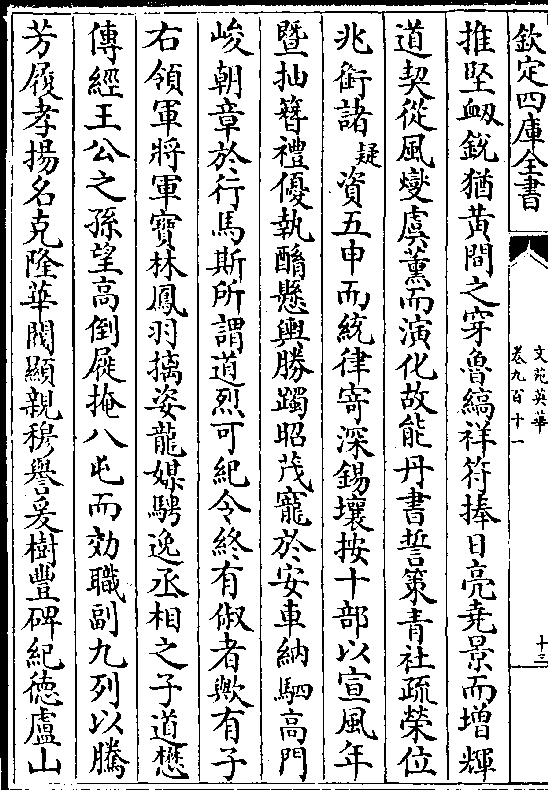 欽定四庫全書
文苑英華
卷九百十一
十三
推堅衂銳猶黃間之穿魯縞祥符捧日亮堯景而增輝
道契從風燮虞薰而演化故能丹書誓策青社疏榮位
兆銜諸疑資五申而統律寄深錫壤按十部以宣風年
暨抽簪禮優執醑懸輿勝躅昭茂寵於安車納駟高門
峻朝章於行馬斯所謂道烈可紀令終有俶者歟有子
右領軍將軍寶林鳳羽摛姿龍媒騁逸丞相之子道懋
傳經王公之孫望高倒屣掩八屯而効職副九列以騰
芳履孝揚名克隆華閥顯親穆譽爰樹豐碑紀德盧山